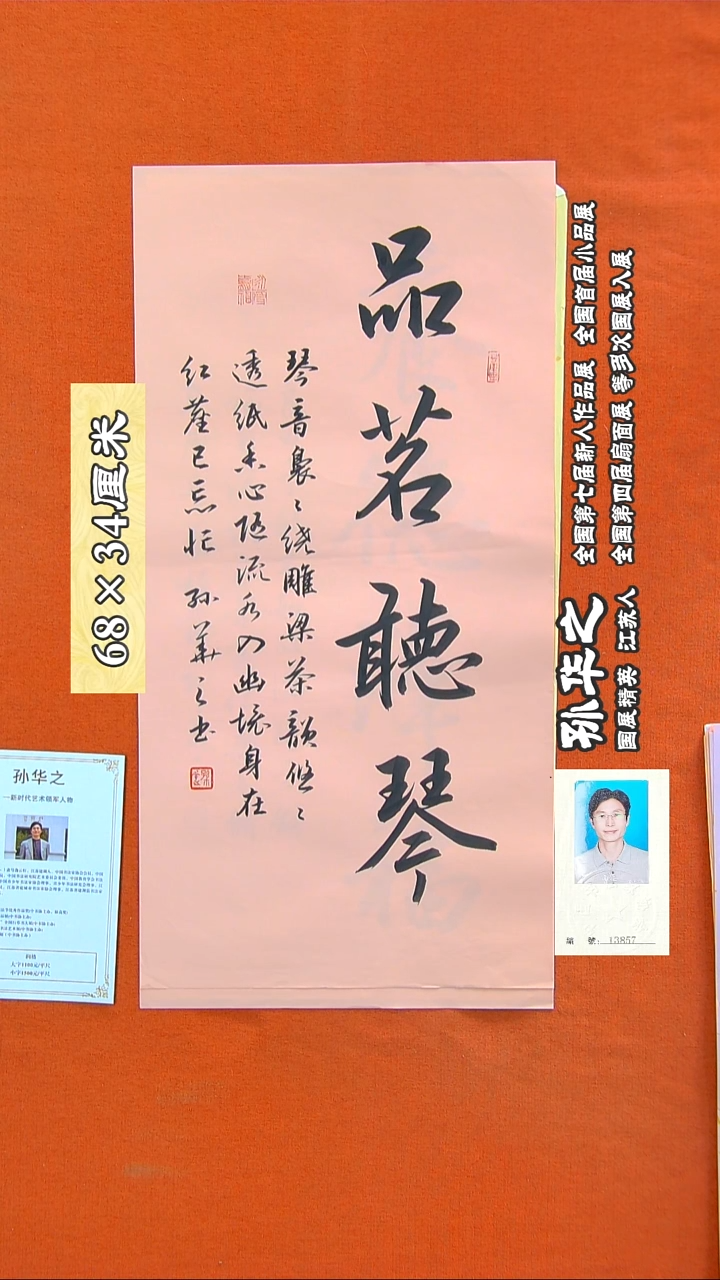 品茗聽琴
琴音裊〻绕雕梁茶韻悠〻
透纸香心随流水入幽境身在
红塵已忘忙 孙華之书
68×34厘米
全国第七届新人作品展 全国首届小品展
全国第四届扇面展 等多次国展入展
孙华之
国展精英 江苏人
编 號: 13857
孙华之
—新时代艺术领军人物
润格
大字1100元/平尺
小字1200元/平尺